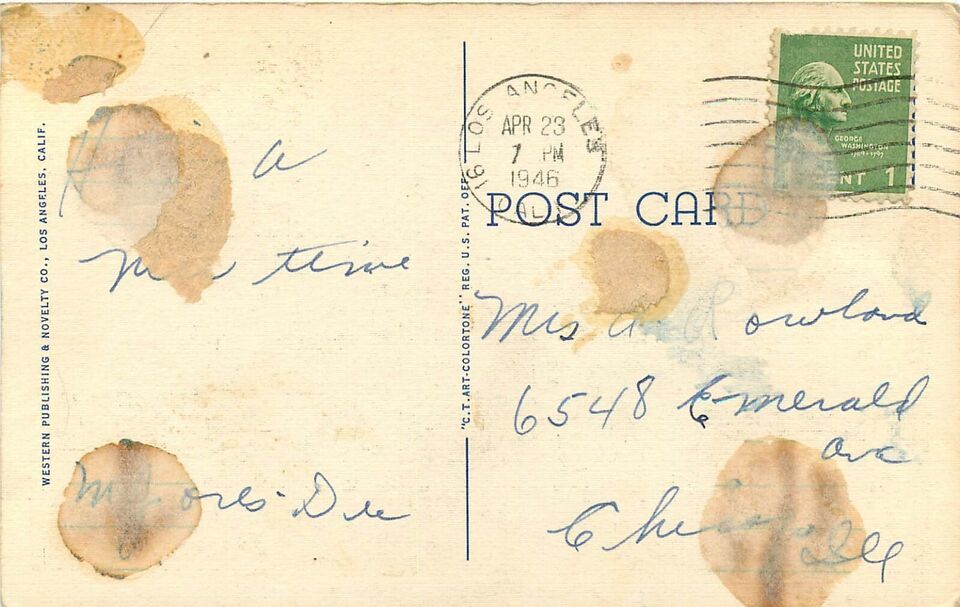 WESTERN PUBLISHING & NOVELTY CO., LOS ANGELES, CALIF.
a
time
"C.T. ART-COLORTONE" REG. U.S. PAT. OFF.
LOS ANGELES
APR 23
7 PM
1946
CALIF
16
UNITED
STATES
POSTAGE
GEORGE
WASHINGTON
1789-1797
CENT 1
POST CARD
Mrs A Rowland
6548 Emerald
Ave
Chicago Ill